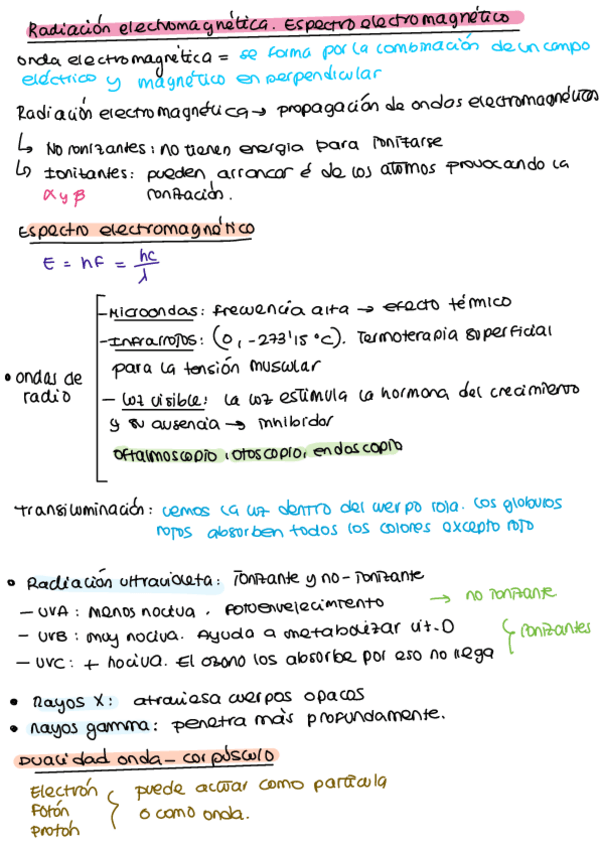 Radiación electromagnética. Espectro electromagnético
onda electromagnética = se forma por la combinación de un campo
eléctrico y magnético en perpendicular
Radiación electromagnética → propagación de ondas electromagnéticas
↳ No ionizantes: no tienen energía para ionizarse
↳ Ionizantes: pueden arrancar é de los átomos provocando la
α y β ionización.
Espectro electromagnético
E = hf = hc/λ
- Microondas: frecuencia alta → efecto térmico
- Infrarrojos: (0, -273'15 °C). Termoterapia superficial
para la tensión muscular
• ondas de
radio
- Luz visible: la luz estimula la hormona del crecimiento
y su ausencia → inhibidor
oftalmoscopio, otoscopio, endoscopio
transiluminación: vemos la luz dentro del cuerpo roja. Los glóbulos
rojos absorben todos los colores excepto rojo
• Radiación ultravioleta: Ionizante y no-ionizante
- UVA: menos nociva. Fotoenvelecimiento → no ionizante
- UVB: muy nociva. Ayuda a metabolizar vit. D
- UVC: + nociva. El ozono los absorbe por eso no llega } ionizantes
• Rayos X: atraviesa cuerpos opacos
• Rayos gamma: penetra más profundamente.
Dualidad onda-corpúsculo
Electrón
Fotón
Protón
} puede actuar como partícula
o como onda.